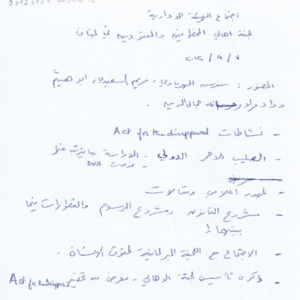 اجتماع الهيئة الادارية
لجنة اهالي المخطوفين والمفقودين في لبنان
٢٠١٢/٩/٥
الحضور : سوسن الهرباوي، مريم السعيدي، ابو هيثم
وداد مراد جمال الدينه
- نشاطات Act for the disappeared
- الصليب الاحمر الدولي - الدراسة
DNA
- ظهور اعلامي ومقالات
- مشروع القانون ومشروع المرسوم والفروقات فيما
بينهما
- الاجتماع مع اللجنة البرلمانية لحقوق الانسان .
- ذكرى تأسيس لجنة الاهالي - معرض من تحضير Act for the disappeared